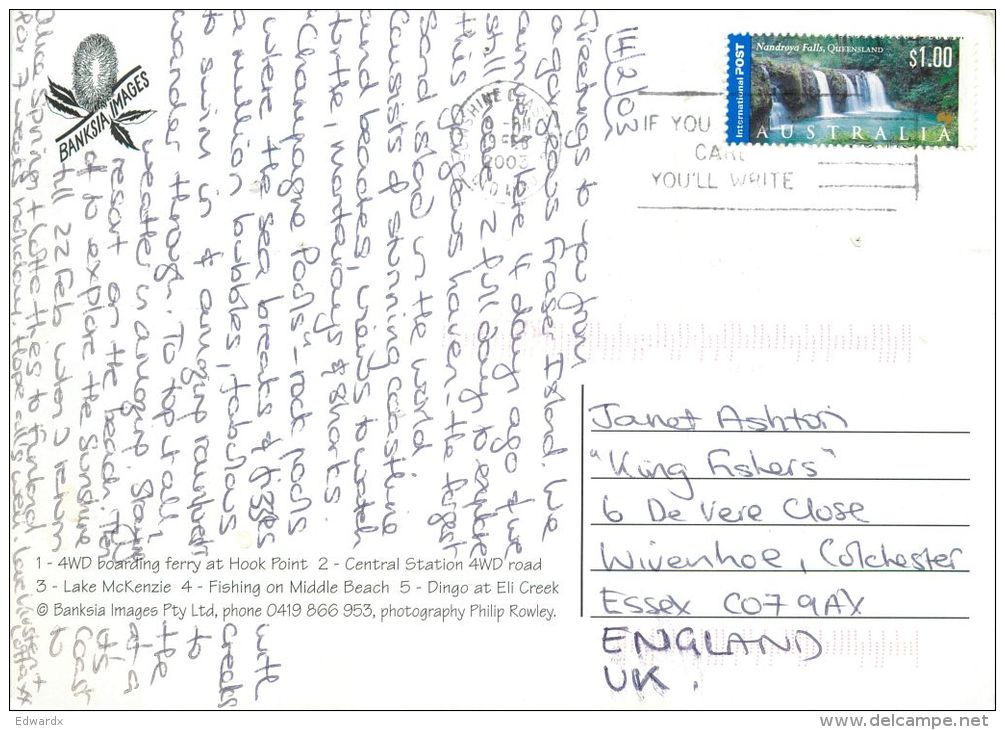 14/2/03
Greetings to you from
a gorgeous Fraser Island. We
arrived here 4 days ago & we
still have 2 full days to explore
this gorgeous haven – the largest
sand island in the world.
Consists of stunning coastline
and beaches, views to watch
turtle, mantarays & sharks.
Champagne Pools – rock pools
where the sea breaks & fizzes with
a million bubbles, fabulous creeks
to swim in & amazing rainforests to
wander through. To top it all the
weather is amazing. Stayin at a
resort on the beach. Then its
off to explore the Sunshine Coast
till 22 Feb when I return to
Alice Springs
for 7 weeks holiday. Hope all's well. Love
BANKSIA IMAGES
International POST
Nandroya Falls, QUEENSLAND
$1.00
AUSTRALIA
SUNSHINE COAST
2003
IF YOU
CARE
YOU'LL WRITE
Janet Ashton
"King Fishers"
6 De Vere Close
Wivenhoe, Colchester
Essex CO7 9AX
ENGLAND
UK.
1 - 4WD boarding ferry at Hook Point 2 - Central Station 4WD road
3 - Lake McKenzie 4 - Fishing on Middle Beach 5 - Dingo at Eli Creek
© Banksia Images Pty Ltd, phone 0419 866 953, photography Philip Rowley.
Edwardx
www.delcampe.net